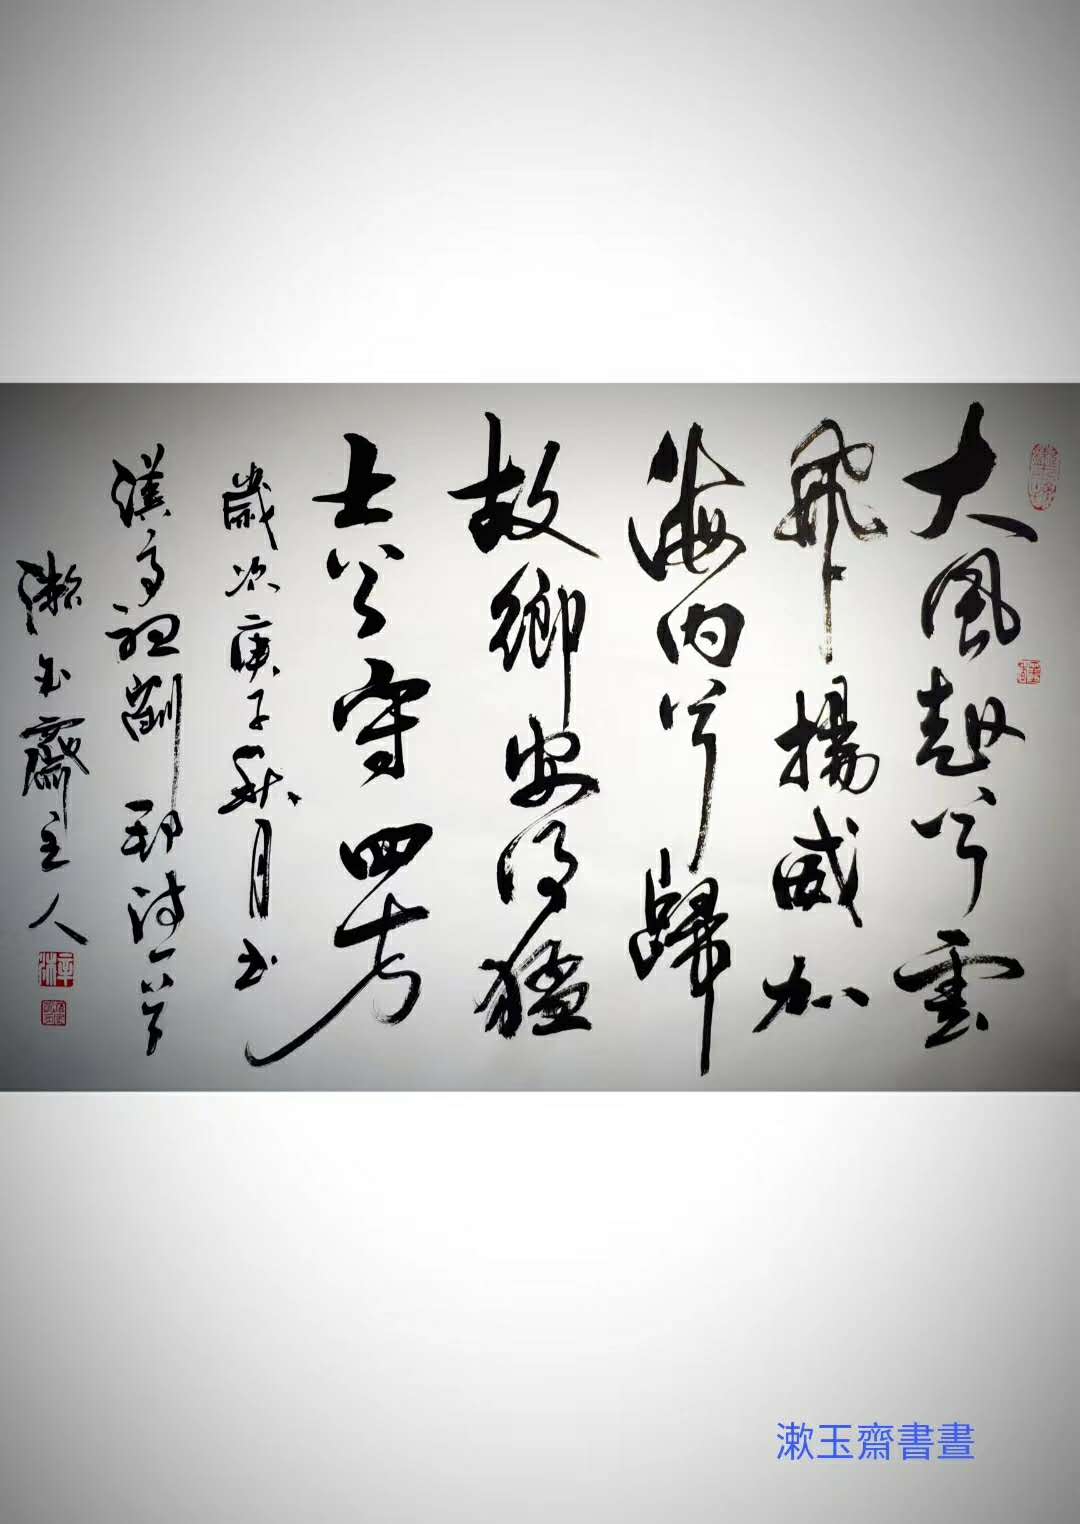 大風起兮雲
飛揚威加
海内兮歸
故鄉安得猛
士兮守四方
歲次庚子秋月書
漢高祖劉邦詩一首
漱玉齋主人
漱玉齋書畫